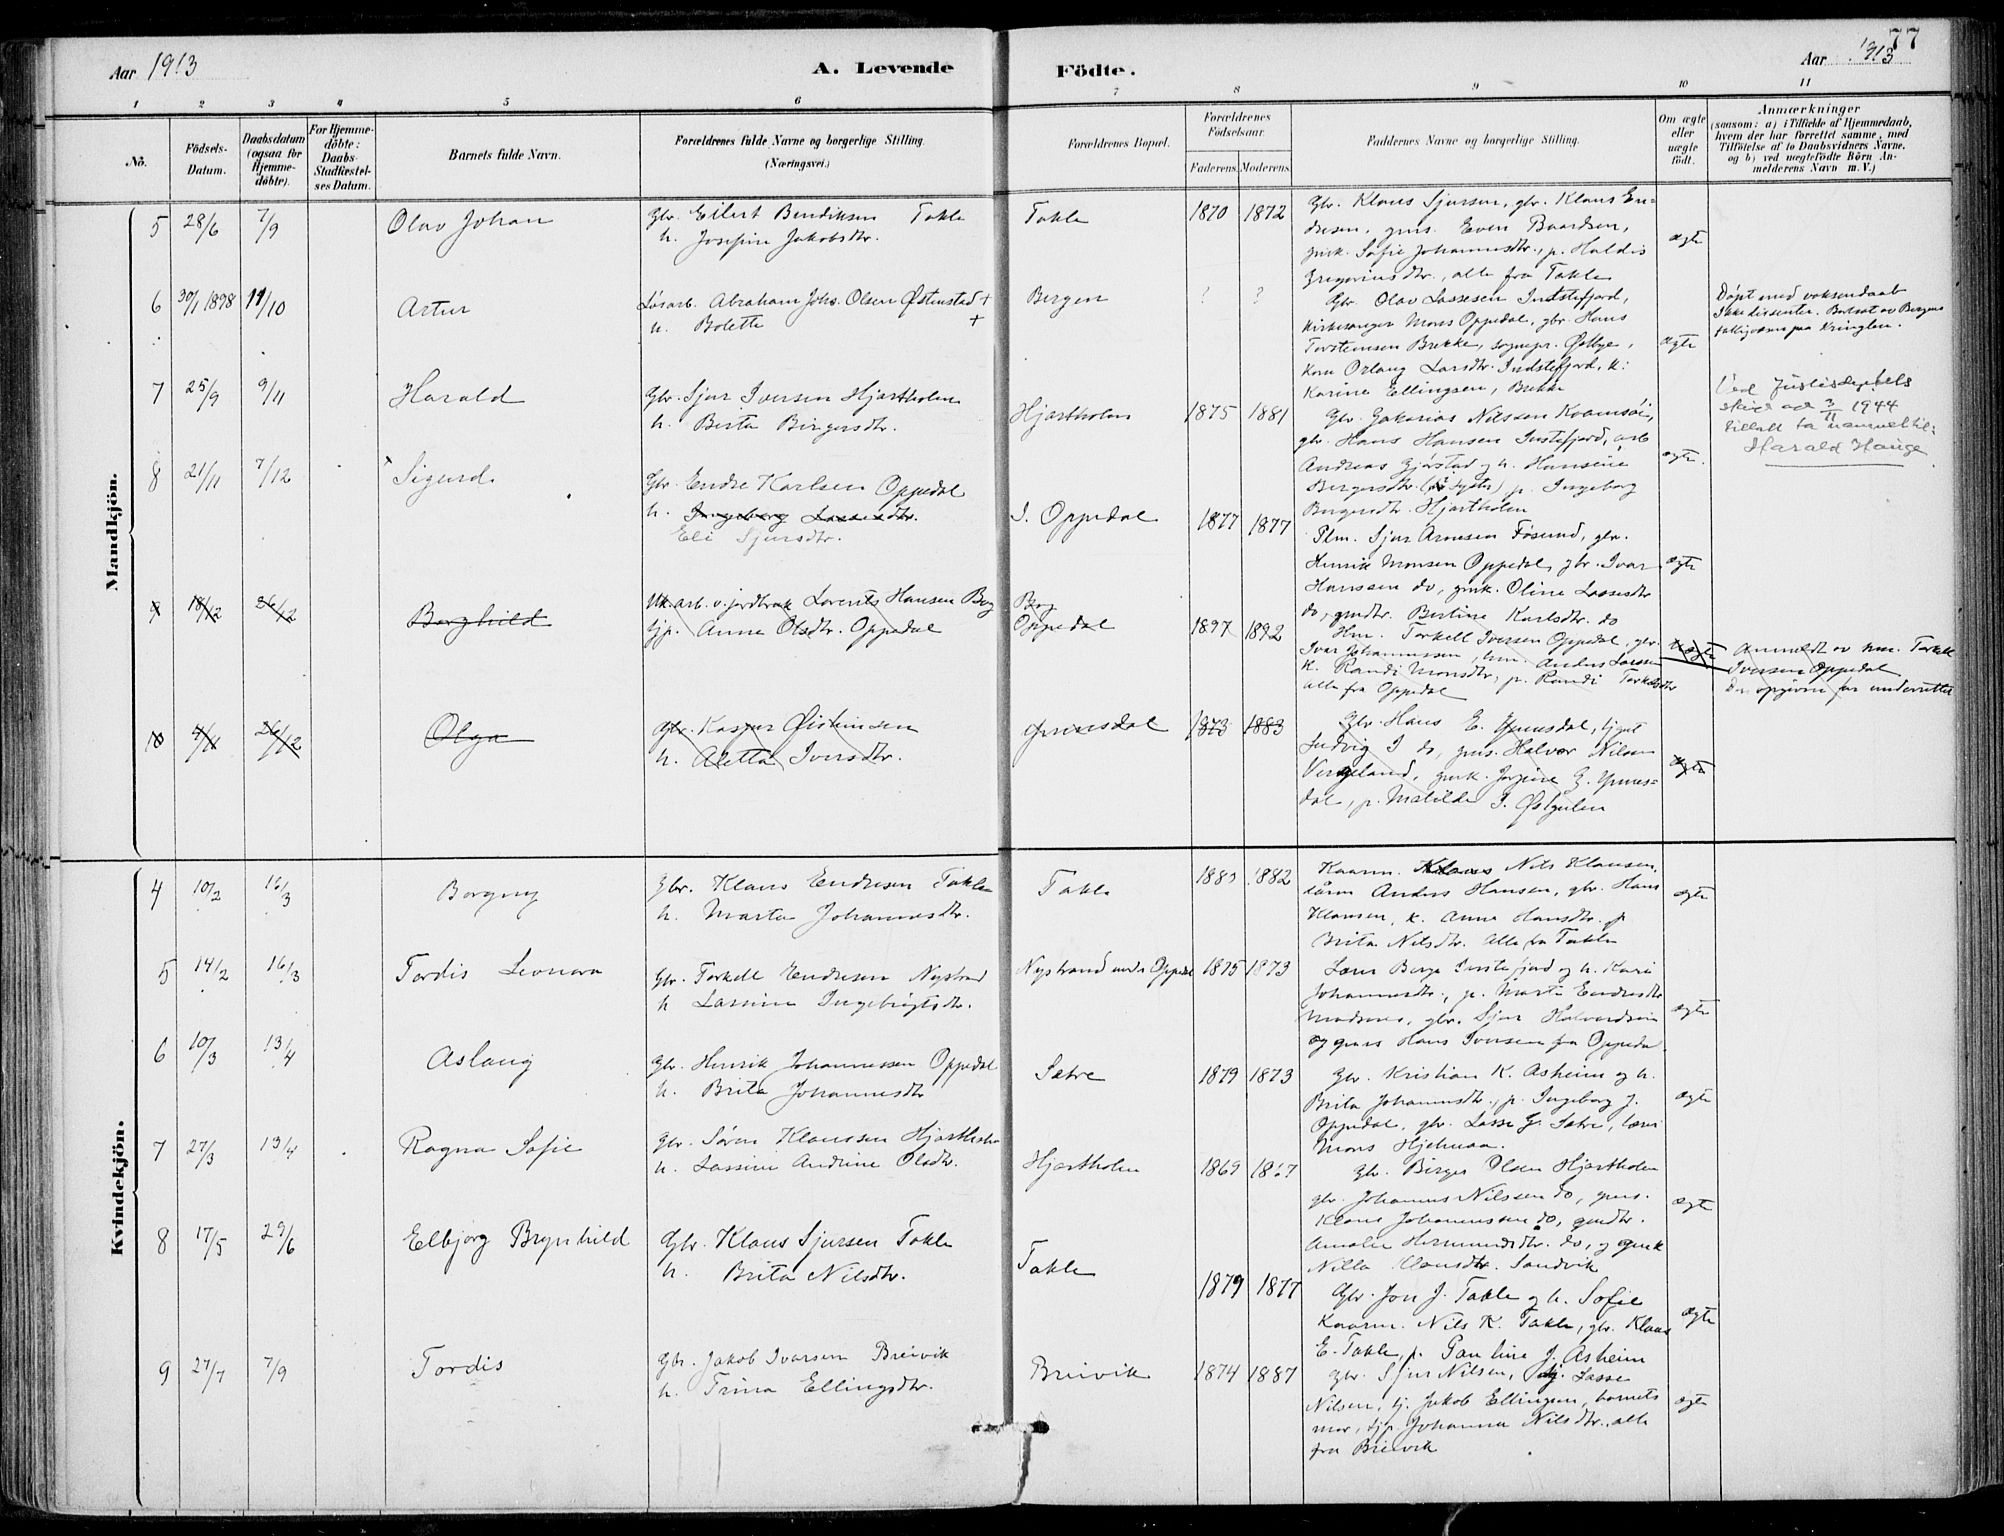 77
Aar 1913
A. Levende Födte.
Aar 1913
1 2 3 4 5 6 7 8 9 10 11
No.
Födsels-Datum.
Daabsdatum (ogsaa for Hjemme-döbte).
For Hjemme-döbte: Daabs-Stadfæstel-ses Datum.
Barnets fulde Navn.
Forældrenes fulde Navne og borgerlige Stilling.
(Næringsvei.)
Forældrenes Bopæl.
Forældrenes Födselsaar.
Faderens. Moderens.
Faddernes Navne og borgerlige Stilling.
Om ægte eller uægte födt.
Anmærkninger
(saasom: a) i Tilfælde af Hjemmedaab,
hvem der har forrettet samme, med
Tilföielse af to Daabsvidners Navne,
og b) ved uægtefödte Börn An-
melderens Navn m. V.)
Mandkjön.
5 28/6 7/9 Olav Johan
Gbr. Eilert Bendiksen Takle
h. Josefine Jakobsdtr.
Takle 1870 1872
Gbr. Klaus Sjursen, gbr. Klaus En-
dresen, gms. Even Baardsen,
gmk. Sofie Johannesdtr., p. Haldis
Gregoriusdtr., alle fra Takle
ægte
6 30/1 1898 11/10 Artur
Løsarb. Abraham Johs. Olsen Østenstad +
h. Bolette +
Bergen ? ?
Gbr. Olav Lassesen Indstefjord,
kirkesanger Mons Oppedal, gbr. Hans
Torsteinsen Brekke, sognepr. Østbye,
kone Orlaug Larsdtr. Indstefjord, k.
Karine Ellingsen, Brekke
ægte
Døpt med voksendaab
Ikke dissenter. Bortsat av Bergens
fattigvæsen paa Kringlen.
7 25/9 9/11 Harald
Gbr. Sjur Iversen Hjartholm
h. Berta Birgersdtr.
Hjartholm 1875 1881
Gbr. Zakarias Nilssen Kvamsøi,
gbr. Hans Hansen Instefjord, arb
Andreas Gjørstad og h. Hansine
Bergersdtr. p. Ingeborg
Bergersdtr. Hjartholm
ægte.
Ved Justisdeptets
skriv ad 3/11 1944
tillatt ta navnet til:
Harald Hauge
8 21/11 7/12 Sigurd
Gbr. Endre Karlsen Oppedal
h. Ingeborg Lassesdtr.
Eli Sjursdtr.
I. Oppedal 1877 1877
Plm. Sjur Arnesen Føsund, gbr.
Henrik Monsen Oppedal, gbr. Ivar
Hanssen do, gmk. Oline Lassesdtr
do, gmdtr. Bertine Karlsdtr. do
ægte
9 18/12 26/12 Borghild
Uk. arb. v. jordbruk Lorents Hansen Bog
tjp. Anna Olsdtr. Oppedal
Bog
Oppedal 1897 1892
Hm. Torkell Iversen Oppedal, gbr.
Ivar Johannessen, hm. Anders Larssen
k. Randi Monsdtr, p. Randi Torkelsdtr
alle fra Oppedal
uægte
Anmeldt av hm. Torkell
Iversen Oppedal
De opgivne far underrettet
10 4/11 26/12 Olga
Gbr. Kaspar Øistensen
h. Aletta Iversdtr.
Ynnesdal 1873 1883
Gbr. Hans E. Ynnesdal, tjgut
Ludvig I do, gms. Halvor Nilsen
Vergeland, gmk. Jorgine E. Ynnes-
dal, p. Matilde I. Østgulen
ægte
Kvindekjön.
4 10/2 16/3 Borgny
Gbr. Klaus Endresen Takle
h. Marta Johannesdtr.
Takle 1883 1882
Kaarm. Nils Klausen,
Anders Hansen, gbr. Hans
Klausen, k. Anna Hansdtr. p
Brita Nilsdtr. Alle fra Takle
ægte
5 14/2 16/3 Tordis Leonora
Gbr. Torkell Endresen Nystrand
h Lassine Ingebrigtsdtr.
Nystrand under Oppedal 1875 1873
Lærer Berge Instefjord og h. Kari
Johannesdtr., p. Marta Endresdtr
gbr. Sjur Halvardsen
og gms Hans Iversen fra Oppedal.
ægte
6 10/3 13/4 Aslaug
Gbr. Henrik Johannessen Oppedal
h. Brita Johannesdtr
Sætre 1879 1873
Gbr. Kristian K. Asheim og h.
Brita Johannesdtr., p. Ingeborg J.
Oppedal, gbr. Lasse G. Sætre, lærer
Mons Hjelmaa.
ægte
7 27/3 13/4 Ragna Sofie
Gbr. Søren Klaussen Hjartholm
h. Lassine Andrine Olsdtr.
Hjartholm 1869 1867
Gbr. Birger Olsen Hjartholm
gbr. Johannes Nilssen do, gms.
Klaus Johannessen do, gmdtr.
Amalie Hermundsdtr. do, og gmk
Nilla Klausdtr. Sandvik
ægte
8 17/5 29/6 Elbjorg Brynhild
Gbr. Klaus Sjursen Takle
h. Brita Nilsdtr.
Takle 1879 1877
Gbr. Jon J. Takle og h. Sofie
Kaarm. Nils K. Takle, gbr. Klaus
E. Takle, p. Pauline J. Asheim
ægte
9 27/7 7/9 Tordis
Gbr. Jakob Ivarsen Breivik
h. Trina Ellingsdtr.
Breivik 1874 1887
Gbr. Sjur Nilsen, tj. Lasse
Nilsen, tj. Jakob Ellingsen, barnets
mor, tjp. Johanna Nilsdtr. alle
fra Breivik
ægte